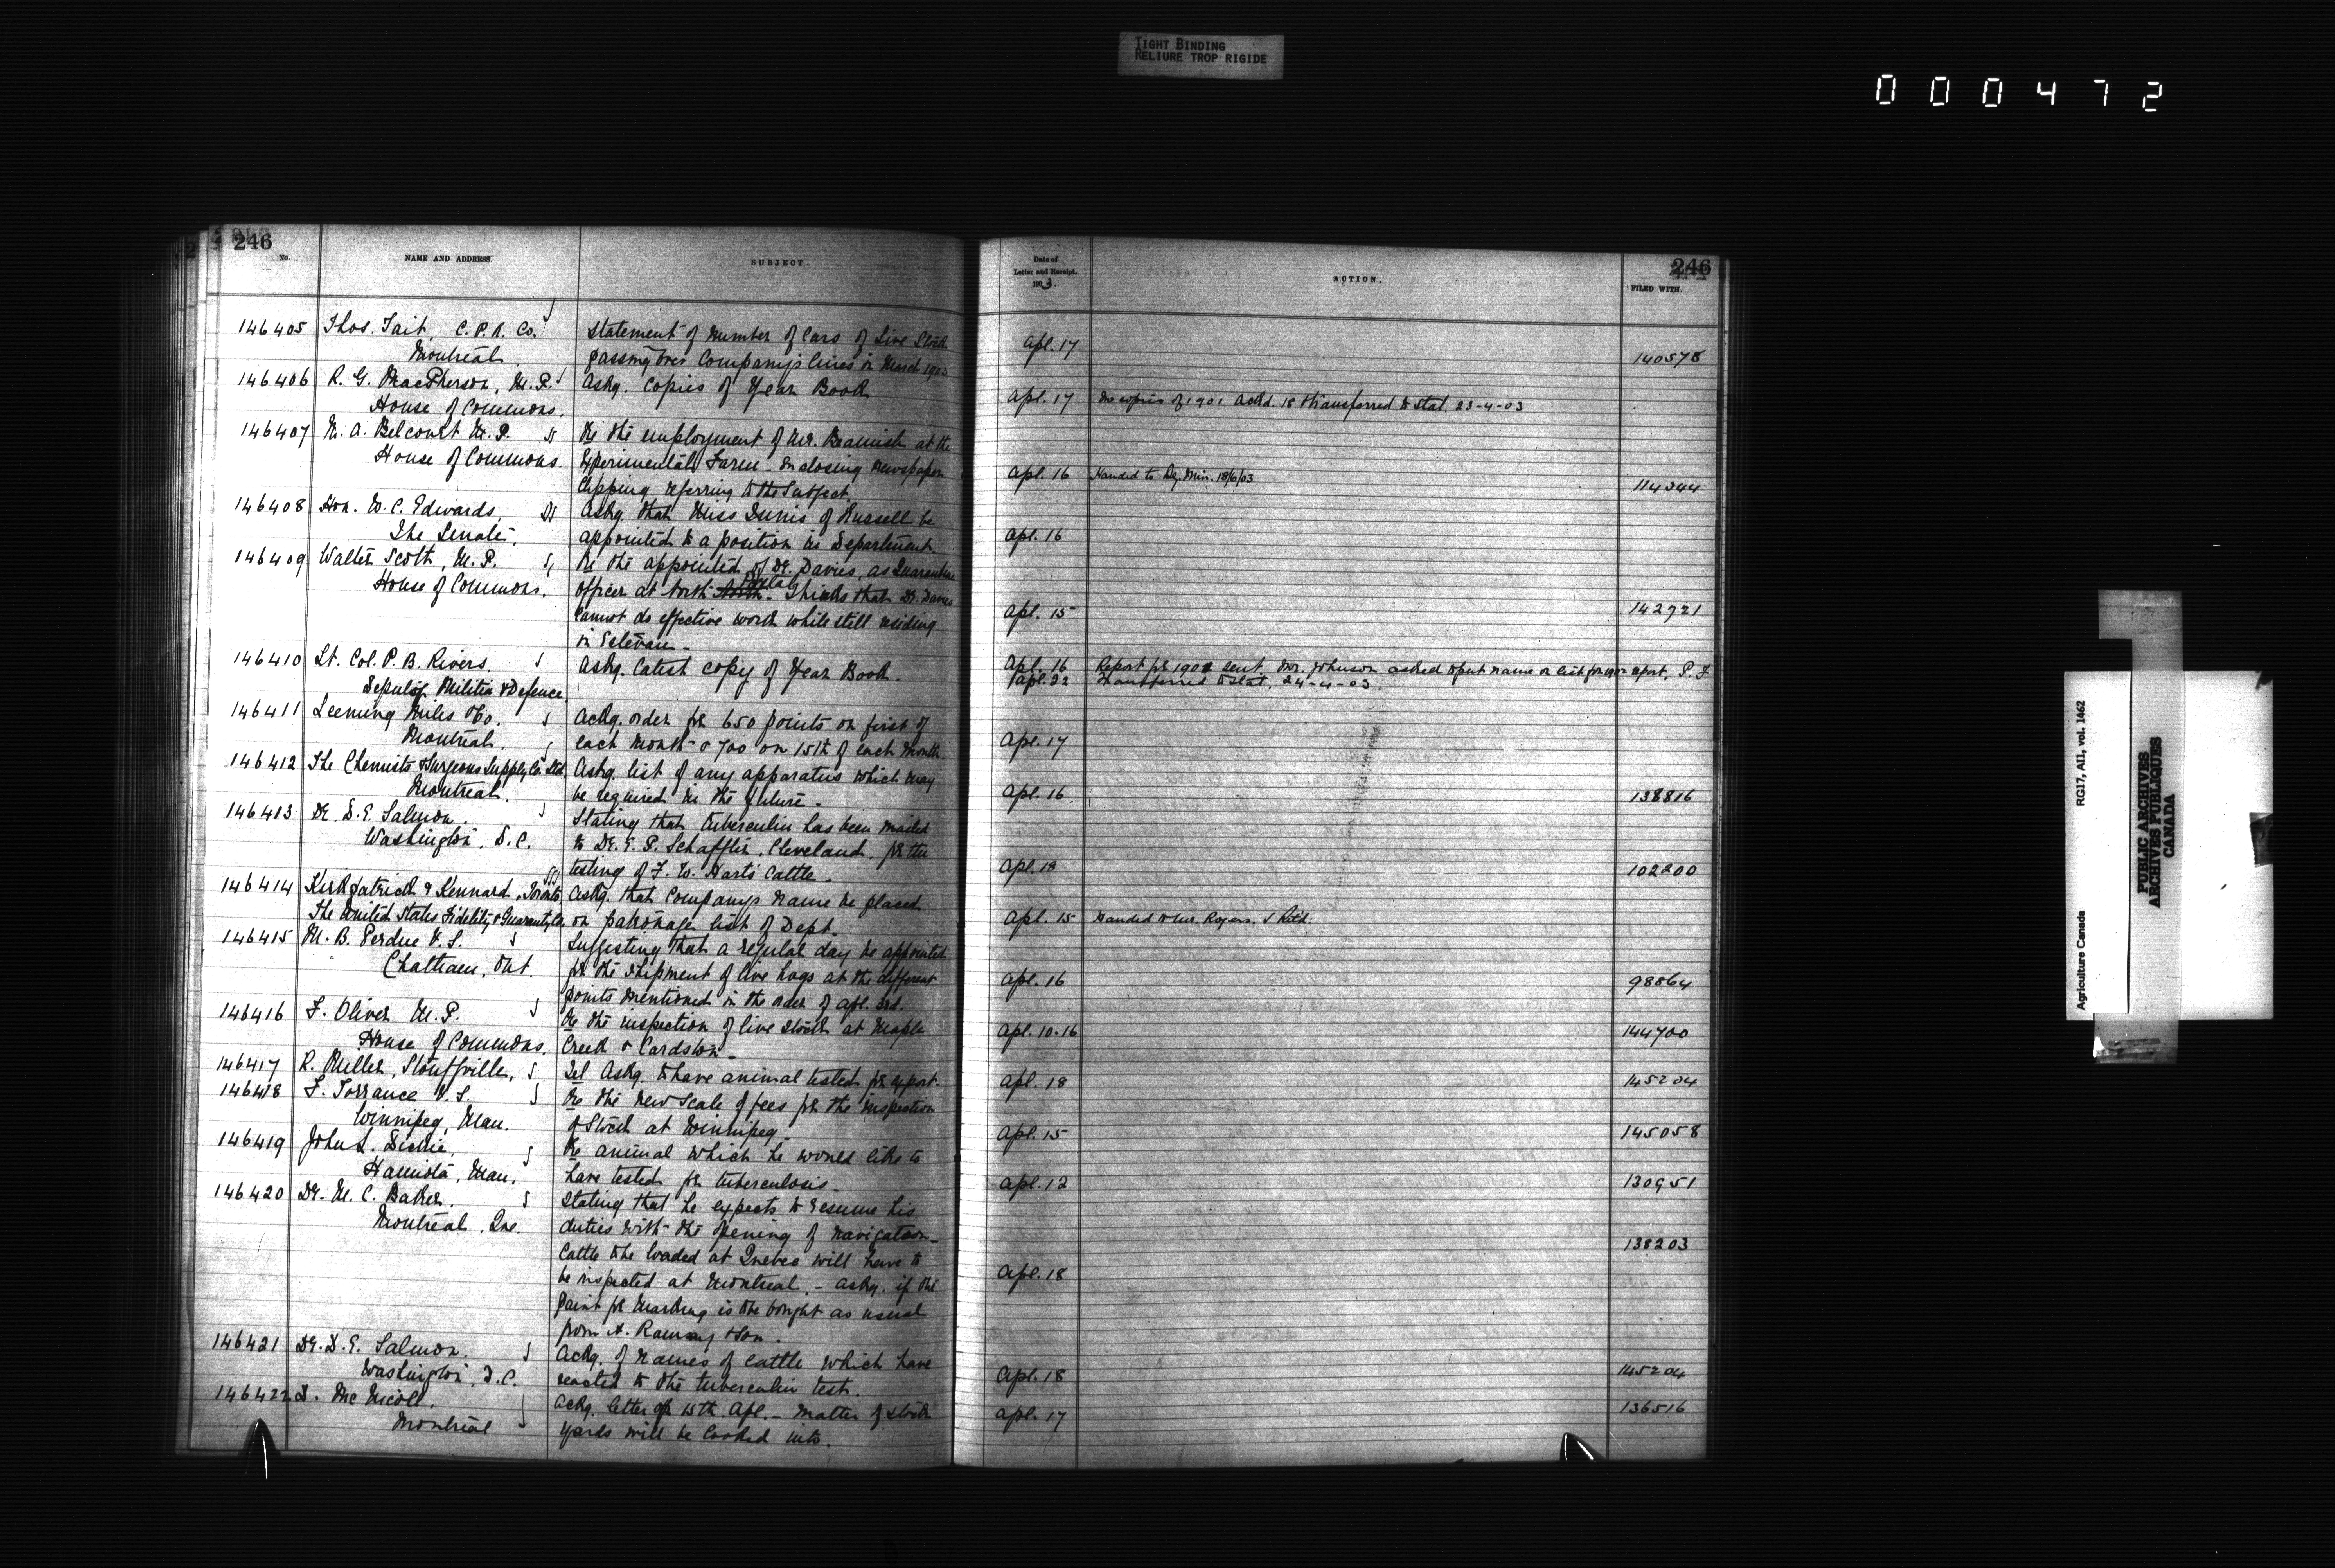 TIGHT BINDING
RELIURE TROP RIGIDE
000472
246
No.
NAME AND ADDRESS.
SUBJECT.
146405 Thos. Tait, C.P.R. Co.
Montreal.
Statement of number of Cars of Live Stock
passing over Company's lines in March 1903
146406 R. G. MacPherson, M.P.
House of Commons.
Askg. copies of Year Book
146407 N. A. Belcourt M.P.
House of Commons.
Re the employment of Mr. Beamish at the
Experimental Farm - enclosing newspaper
clipping referring to the subject.
146408 Hon. W. C. Edwards
The Senate.
Askg. that Miss of Russell be
appointed to a position in Department
146409 Walter Scott, M.P.
House of Commons.
Re the appointed of Dr. Davies, as Quarantine
officer at North Portal - Thinks that Dr. Davies
cannot do effective work while still residing
in Estevan -
146410 Lt. Col. P. B. Rivers.
Militia & Defence
Askg. latest copy of Year Book.
146411 Leeming Miles & Co.
Montreal.
Ackg. order for 650 points on first of
each month & 700 on 15th of each month
146412 The Chemists & Surgeons Supply Co. Ltd.
Montreal.
Askg. list of any apparatus which may
be required in the future -
146413 Dr. D. E. Salmon.
Washington, D.C.
Stating that tuberculin has been mailed
to Dr. E. P. Schaffter, Cleveland, for the
testing of F. W. Harts cattle -
146414 Kirkpatrick & Kennard, Toronto
The United States Fidelity & Guaranty Co.
Askg. that Companys name be placed
on patronage list of Dept.
146415 M. B. Perdue V.S.
Chatham, Ont.
Suggesting that a regular day be appointed
for the shipment of live hogs at the different
points mentioned in the order of Apl. 3rd.
146416 F. Oliver M.P.
House of Commons.
Re the inspection of live stock at Maple
Creek & Cardston -
146417 R. Miller, Stouffville,
Tel Askg. to have animal tested for export.
146418 F. Torrance V.S.
Winnipeg, Man.
Re the new scale of fees for the inspection
of Stock at Winnipeg -
146419 John L.
Hamiota, Man.
Re animal which he would like to
have tested for tuberculosis -
146420 Dr. M. C. Baker.
Montreal, Que.
Stating that he expects to resume his
duties with the opening of navigation -
Cattle to be loaded at Quebec will have to
be inspected at Montreal. - Askg. if the
paint for marking is to be bought as usual
from A. Ramsay & Son.
146421 Dr. D. E. Salmon.
Washington, D.C.
Ackg. of names of cattle which have
reacted to the tuberculin test.
146422 D. McNicoll.
Montreal
Ackg. letter of 15th Apl. - Matter of stock
yards will be looked into.
Date of
Letter and Receipt.
1903.
ACTION.
246
FILED WITH
Apl. 17 140578
Apl. 17 No copies of 1901 Ackd. 18 Transferred to Stat. 23-4-03
Apl. 16 Handed to Dy. Min. 18/6/03 114344
Apl. 16
Apl. 15 142721
Apl. 16 Report for 1901 sent. Mr. Johnson asked to put name on list for 1902 report. P. F
Apl. 22 Transferred to Stat. 24-4-03
Apl. 17
Apl. 16 138816
Apl. 18 102200
Apl. 15 Handed to Mr. Rogers.
Apl. 16 98864
Apl. 10-16 144700
Apl. 18 145204
Apl. 15 145058
Apl. 12 130951
138203
Apl. 18
Apl. 18 145204
Apl. 17 136516
Agriculture Canada RG17, AII, vol. 1462
PUBLIC ARCHIVES
ARCHIVES PUBLIQUES
CANADA